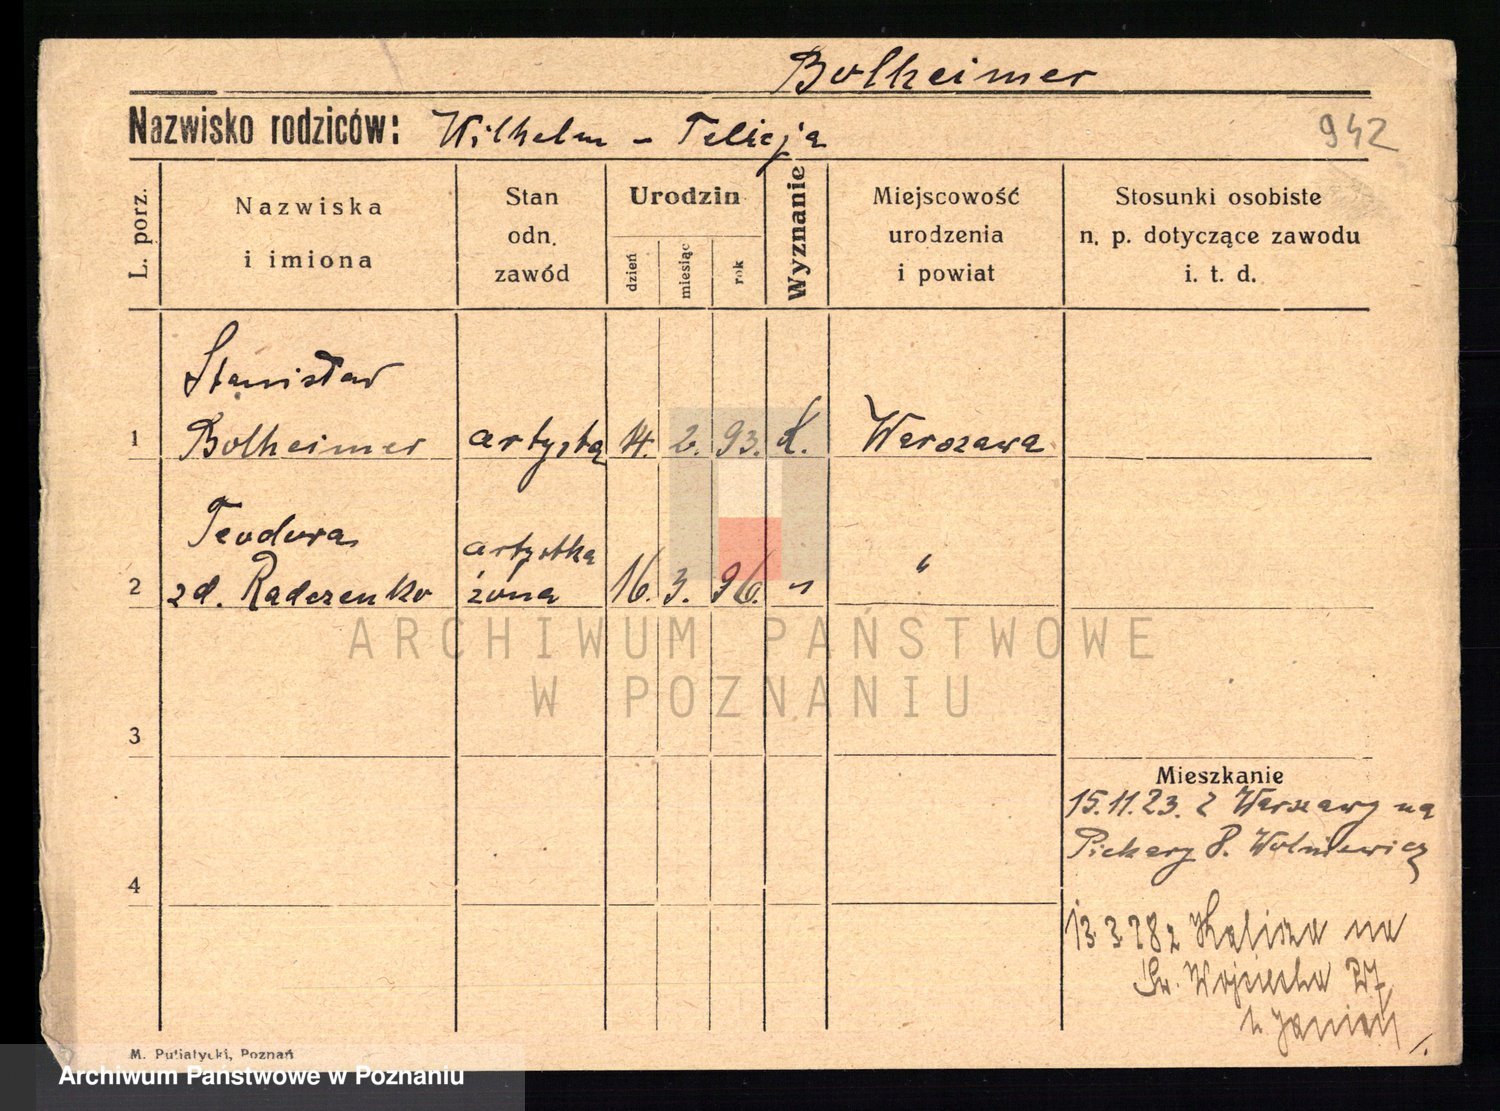 Bolheimer
Nazwisko rodziców: Wilhelm – Felicja
942
L. porz.
Nazwiska
i imiona
Stan
odn.
zawód
Urodzin
dzień
miesiąc
rok
Wyznanie
Miejscowość
urodzenia
i powiat
Stosunki osobiste
n. p. dotyczące zawodu
i. t. d.
Stanisław
1 Bolheimer artysta 14. 2. 93. k. Warszawa
Teodora artystka
2 zd. Radczenko żona 16. 3. 96. " "
ARCHIWUM PAŃSTWOWE
W POZNANIU
3
Mieszkanie
15.11.23. z Warszawy na
Piekary 8. Wolniewicz
4
13 3 28 z Kalisza na
Św. Wojciecha 27
M. Putiatycki, Poznań
Archiwum Państwowe w Poznaniu